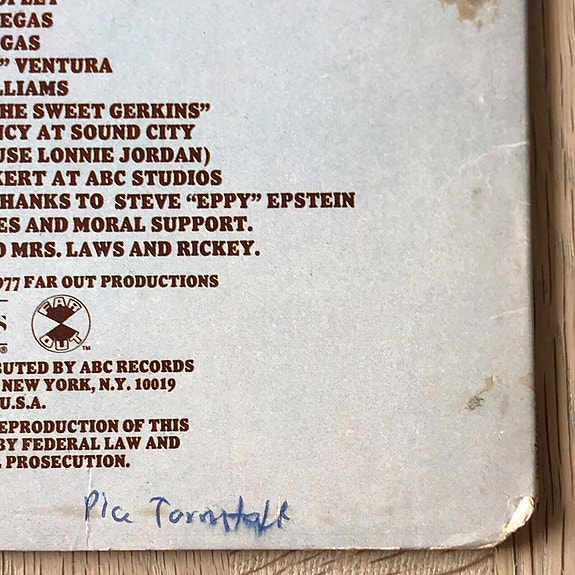 EGAS
GAS
” VENTURA
LLIAMS
HE SWEET GERKINS”
NCY AT SOUND CITY
USE LONNIE JORDAN)
KERT AT ABC STUDIOS
HANKS TO STEVE “EPPY” EPSTEIN
ES AND MORAL SUPPORT.
O MRS. LAWS AND RICKEY.
977 FAR OUT PRODUCTIONS
S
®
FAR
OUT
™
BUTED BY ABC RECORDS
NEW YORK, N.Y. 10019
U.S.A.
EPRODUCTION OF THIS
BY FEDERAL LAW AND
PROSECUTION.
Pia